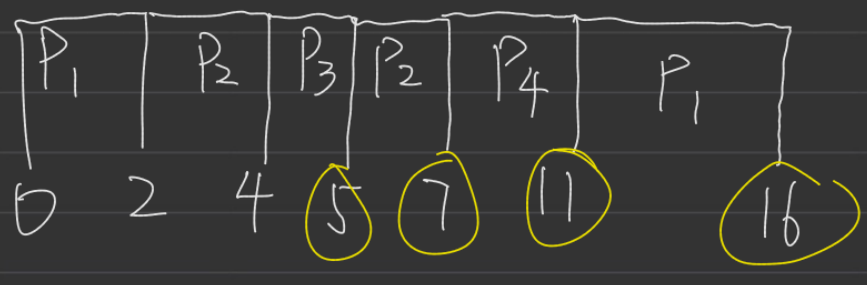 P₁ P₂ P₃ P₂ P₄ P₁
0 2 4 5 7 11 16